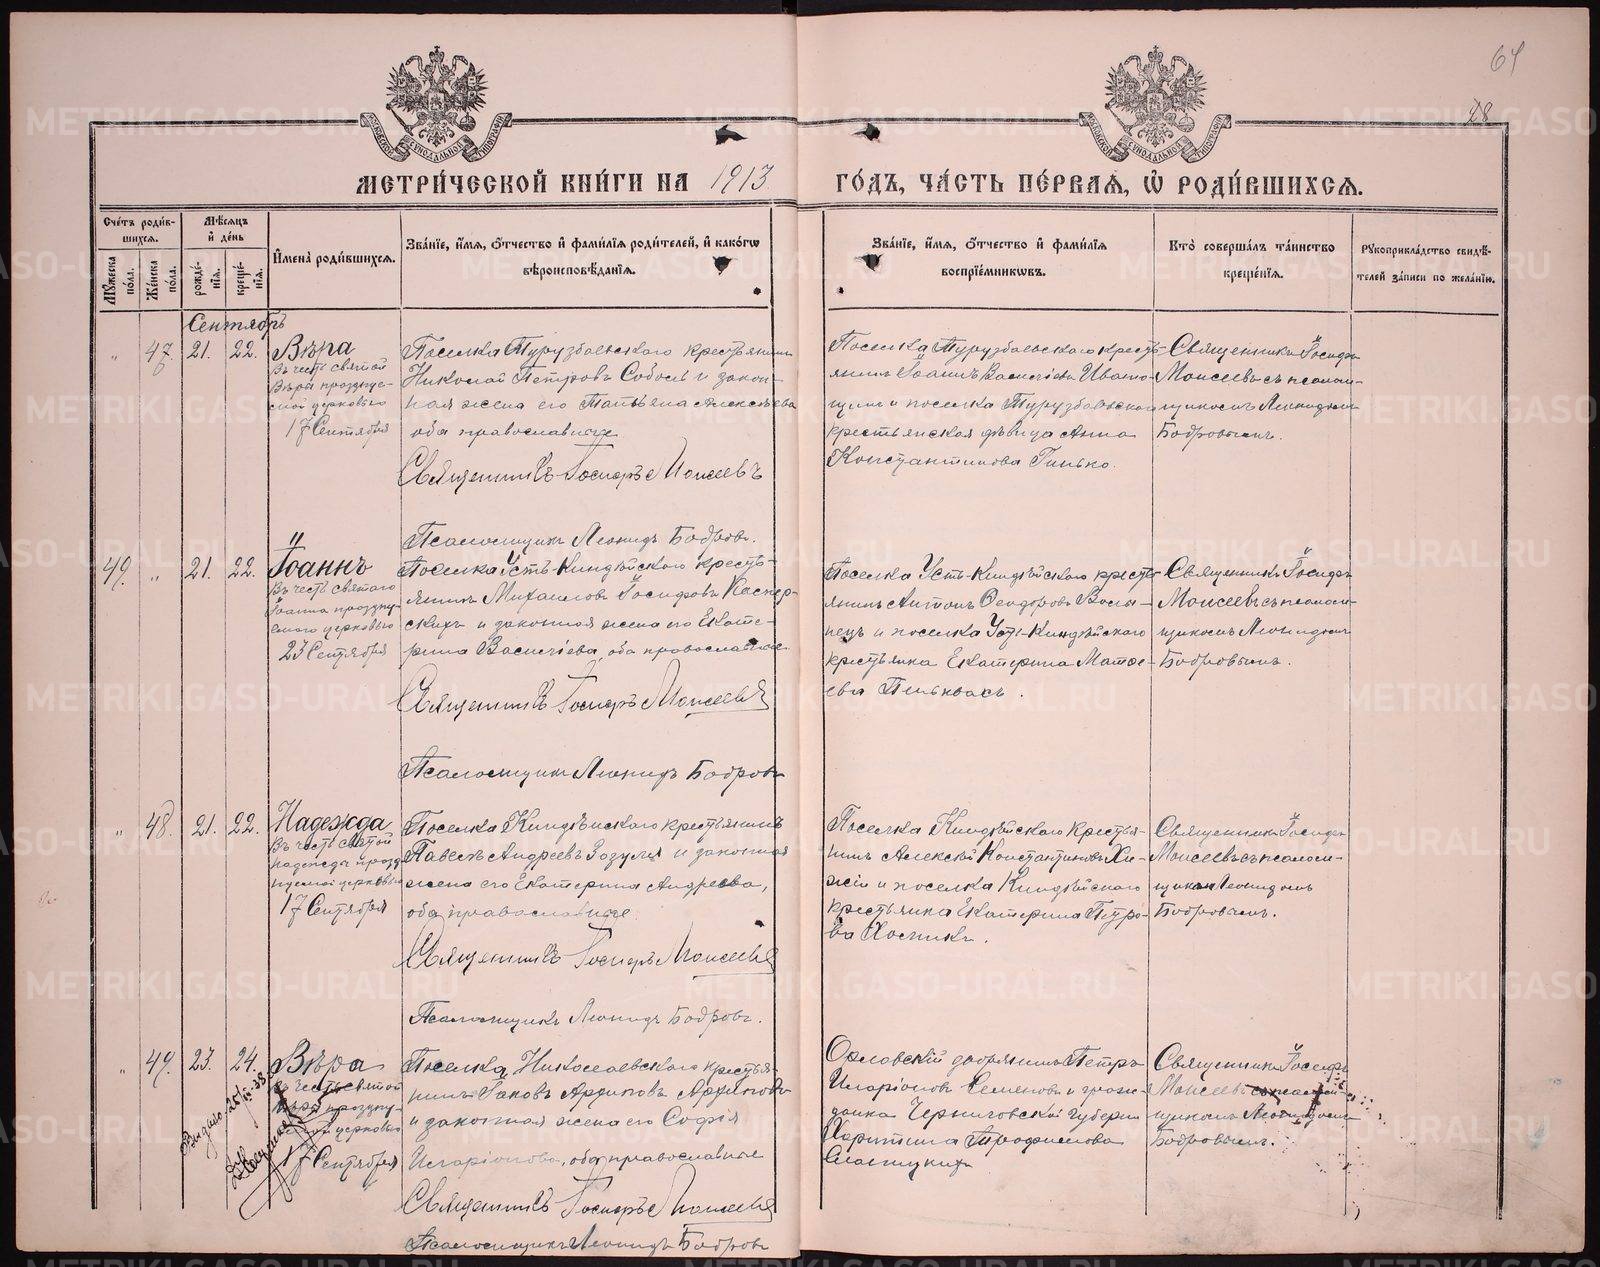 64
28
МОСКОВСКОЙ СѴНОДАЛЬНОЙ ТИПОГРАФІИ
МОСКОВСКОЙ СѴНОДАЛЬНОЙ ТИПОГРАФІИ
МЕТРИ́ЧЕСКОЙ КНИ́ГИ НА 1913 ГО́ДЪ, ЧА́СТЬ ПЕ́РВАЯ, Ѡ҆ РОДИ́ВШИХСЯ.
Сче́тъ роди́в-
шихся.
Му́жеска
по́ла.
Же́нска
по́ла.
Мѣ́сяцъ
и҆ де́нь
рожде́-
нія.
креще́-
нія.
И҆мена̀ роди́вшихся.
Зва́ніе, и҆́мя, ѻ҆́тчество и҆ фами́лія роди́телей, и҆ како́гѡ
вѣроисповѣ́данія.
Зва́ніе, и҆́мя, ѻ҆́тчество и҆ фами́лія
воспріе́мникѡвъ.
Кто̀ соверша́лъ та́инство
креще́нія.
Рꙋкоприкла́дство свидѣ́-
телей за́писи по жела́нію.
Сентябрь
" 47. 21. 22.
Вѣра
Въ честь святой
Вѣры празднуе-
мой церковью
17 Сентября
Поселка Турузбаевскаго крестьянинъ
Николай Петровъ Соболь и закон-
ная жена его Татьяна Алексѣева
оба православные
Священникъ Іосифъ Моисеевъ
Псаломщикъ Леонидъ Бобровъ.
Поселка Турузбаевскаго кресть-
янинъ Іоаннъ Василіевъ
и поселка Турузбаевскаго
крестьянская дѣвица Анна
Константинова Гинько.
Священникъ Іосифъ
Моисеевъ съ псалом-
щикомъ Леонидомъ
Бобровымъ.
49. " 21. 22.
Іоаннъ
Въ честь святаго
Іоанна праздну-
емаго церковью
23 Сентября
Поселка Усть-Киндѣйскаго кресть-
янинъ Михаиловъ Іосифовъ
и законная жена его Екате-
рина Василіева, оба православные
Священникъ Іосифъ Моисеевъ
Псаломщикъ Леонидъ Бобровъ
Поселка Усть-Киндѣйскаго кресть-
янинъ Антонъ Ѳеодоровъ
и поселка Усть-Киндѣйскаго
крестьянка Екатерина
Священникъ Іосифъ
Моисеевъ съ псалом-
щикомъ Леонидомъ
Бобровымъ.
" 48. 21. 22.
Надежда
Въ честь святой
Надежды празд-
нуемой церковью
17 Сентября
Поселка Киндѣйскаго крестьянинъ
Павелъ Андреевъ Зозуля и законная
жена его Екатерина Андреева,
оба православные
Священникъ Іосифъ Моисеевъ
Псаломщикъ Леонидъ Бобровъ.
Поселка Киндѣйскаго крестья-
нинъ Алексѣй Константиновъ
и поселка Киндѣйскаго
крестьянка Екатерина Петро-
ва
Священникъ Іосифъ
Моисеевъ съ псалом-
щикомъ Леонидомъ
Бобровымъ.
" 49. 23. 24.
Вѣра
Въ честь святой
Вѣры праздну-
емой церковью
17 Сентября
Выдано
Поселка Николаевскаго крестья-
нинъ Іаковъ Архиповъ Архиповъ
и законная жена его Софія
Иларіонова, оба православные
Священникъ Іосифъ Моисеевъ
Псаломщикъ Леонидъ Бобровъ
Орловскій дворянинъ Петръ
Иларіоновъ Семеновъ и граж-
данка Черниговской губерніи
Харитина Трофимова
Священникъ Іосифъ
Моисеевъ съ псалом-
щикомъ Леонидомъ
Бобровымъ.
METRIKI.GASO-URAL.RU